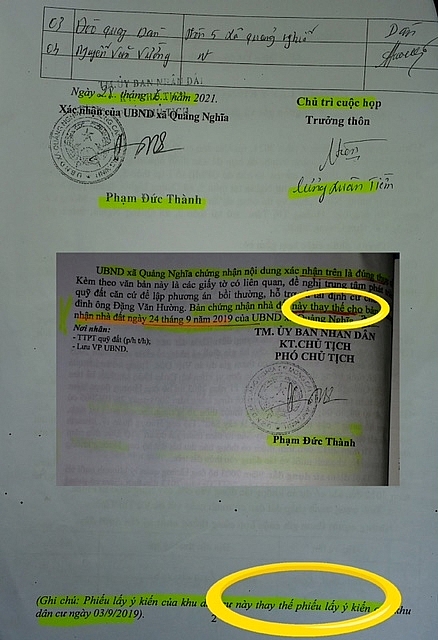 03 Đỗ Quang Dân thôn 5 xã quảng nghĩa Dân
04 Nguyễn Văn Vường
TM. ỦY BAN NHÂN DÂN
Ngày 28 tháng năm 2021.
Xác nhận của UBND xã Quảng Nghĩa
Chủ trì cuộc họp
Trưởng thôn
Phạm Đức Thành
UBND xã Quảng Nghĩa chứng nhận nội dung xác nhận trên là đúng
Kèm theo văn bản này là các giấy tờ có liên quan, đề nghị trung tâm phát
quỹ đất căn cứ để lập phương án bồi thường, hỗ trợ tái định cư
đình ông Đặng Văn Hường. Bản chứng nhận nhà đất này thay thế cho bản
nhận nhà đất ngày 24 tháng 9 năm 2019 của UBND xã Quảng Nghĩa
Nơi nhận:
- TTPT quỹ đất (p/h t/h);
- Lưu VP UBND.
TM. ỦY BAN NHÂN DÂN
KT.CHỦ TỊCH
PHÓ CHỦ TỊCH
Phạm Đức Thành
(Ghi chú: Phiếu lấy ý kiến của khu dân cư này thay thế phiếu lấy ý kiến khu
dân cư ngày 03/9/2019).
2